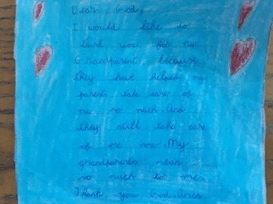 Dear God,
I would like to
thank you for my
Grandparent because
they have helped my
parent take care of
me so much and
they still take care
of me now. My
grandparents mean
so much to me.
Thank you God